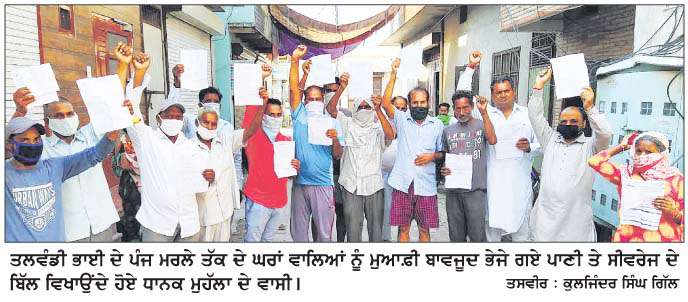 URBAN
ਤਲਵੰਡੀ ਭਾਈ ਦੇ ਪੰਜ ਮਰਲੇ ਤੱਕ ਦੇ ਘਰਾਂ ਵਾਲਿਆਂ ਨੂੰ ਮੁਆਫ਼ੀ ਬਾਵਜੂਦ ਭੇਜੇ ਗਏ ਪਾਣੀ ਤੇ ਸੀਵਰੇਜ ਦੇ
ਬਿੱਲ ਵਿਖਾਉਂਦੇ ਹੋਏ ਧਾਨਕ ਮੁਹੱਲਾ ਦੇ ਵਾਸੀ। ਤਸਵੀਰ : ਕੁਲਜਿੰਦਰ ਸਿੰਘ ਗਿੱਲ